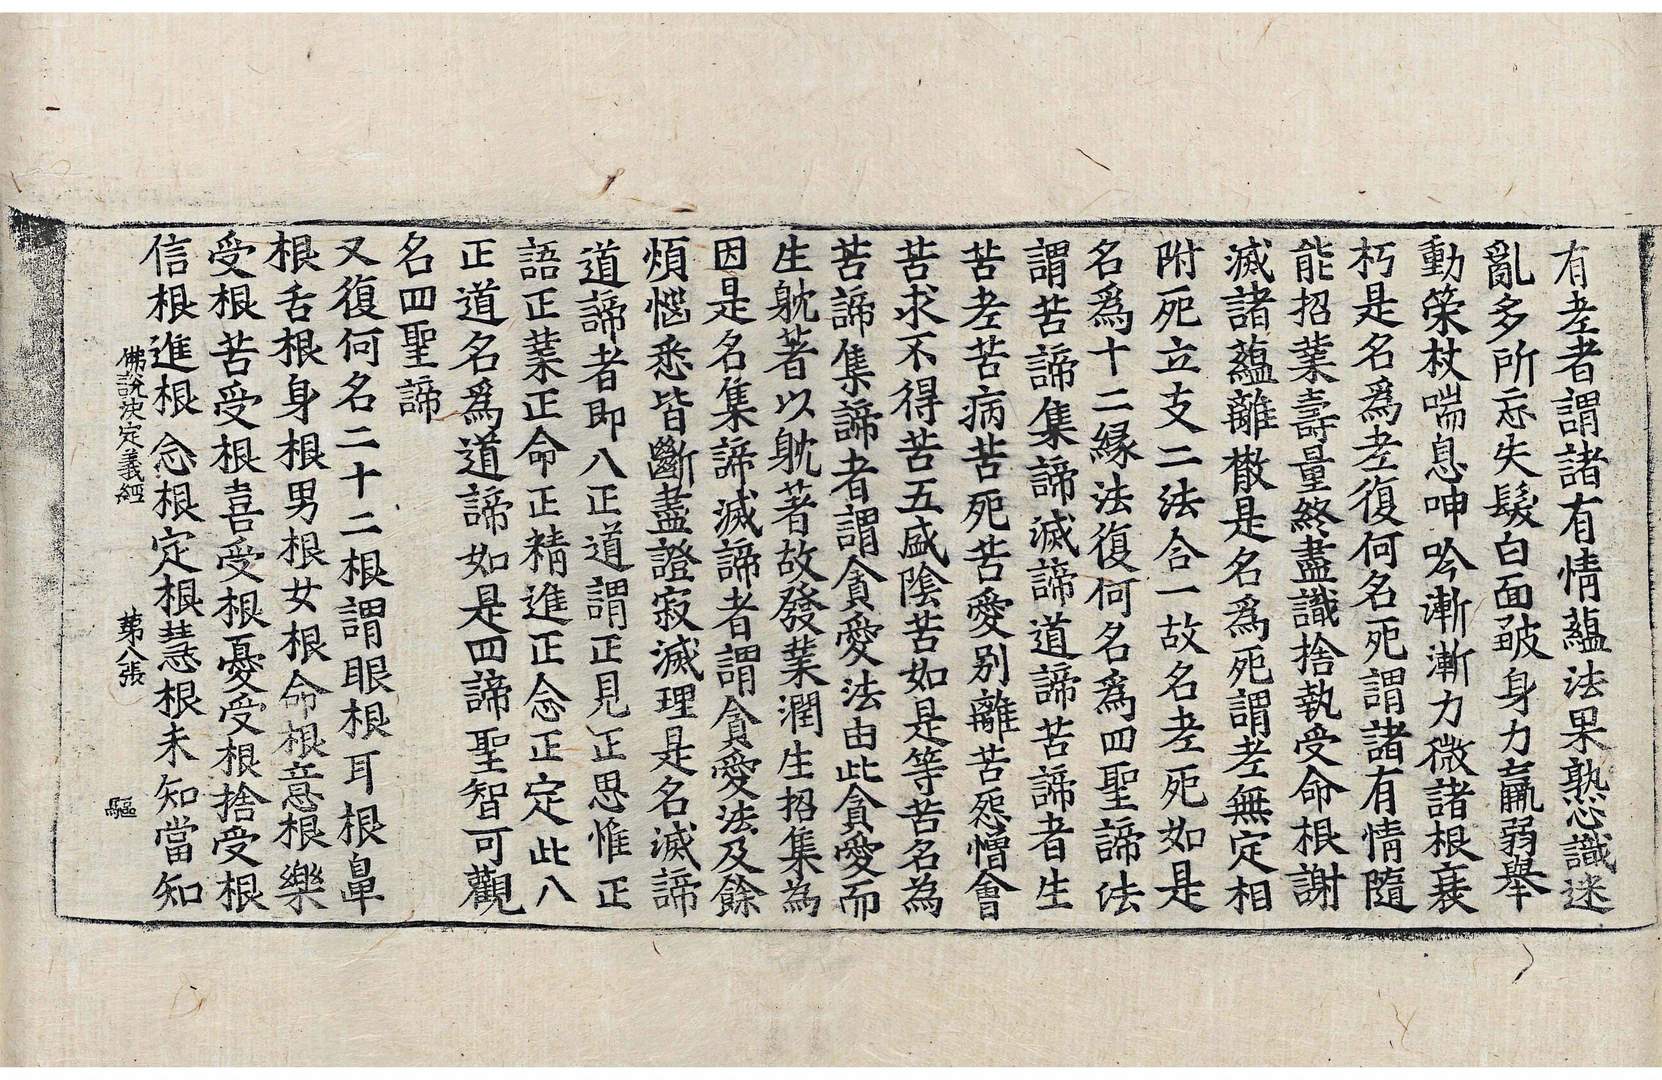 有老者謂諸有情蘊法果熟心識迷
亂多所忘失髮白面皺身力羸弱舉
動策杖喘息呻吟漸漸力微諸根衰
朽是名爲老復何名死謂諸有情隨
能招業壽量終盡識捨執受命根謝
滅諸蘊離散是名爲死謂老無定相
附死立支二法合一故名老死如是
名爲十二緣法復何名爲四聖諦法
謂苦諦集諦滅諦道諦苦諦者生
苦老苦病苦死苦愛别離苦怨憎會
苦求不得苦五盛陰苦如是等苦名為
苦諦集諦者謂貪愛法由此貪愛而
生躭著以躭著故發業潤生招集為
因是名集諦滅諦者謂貪愛法及餘
煩惱悉皆斷盡證寂滅理是名滅諦
道諦者即八正道謂正見正思惟正
語正業正命正精進正念正定此八
正道名爲道諦如是四諦聖智可觀
名四聖諦
又復何名二十二根謂眼根耳根鼻
根舌根身根男根女根命根意根樂
受根苦受根喜受根憂受根捨受根
信根進根念根定根慧根未知當知
佛說決定義經 第八張 驅